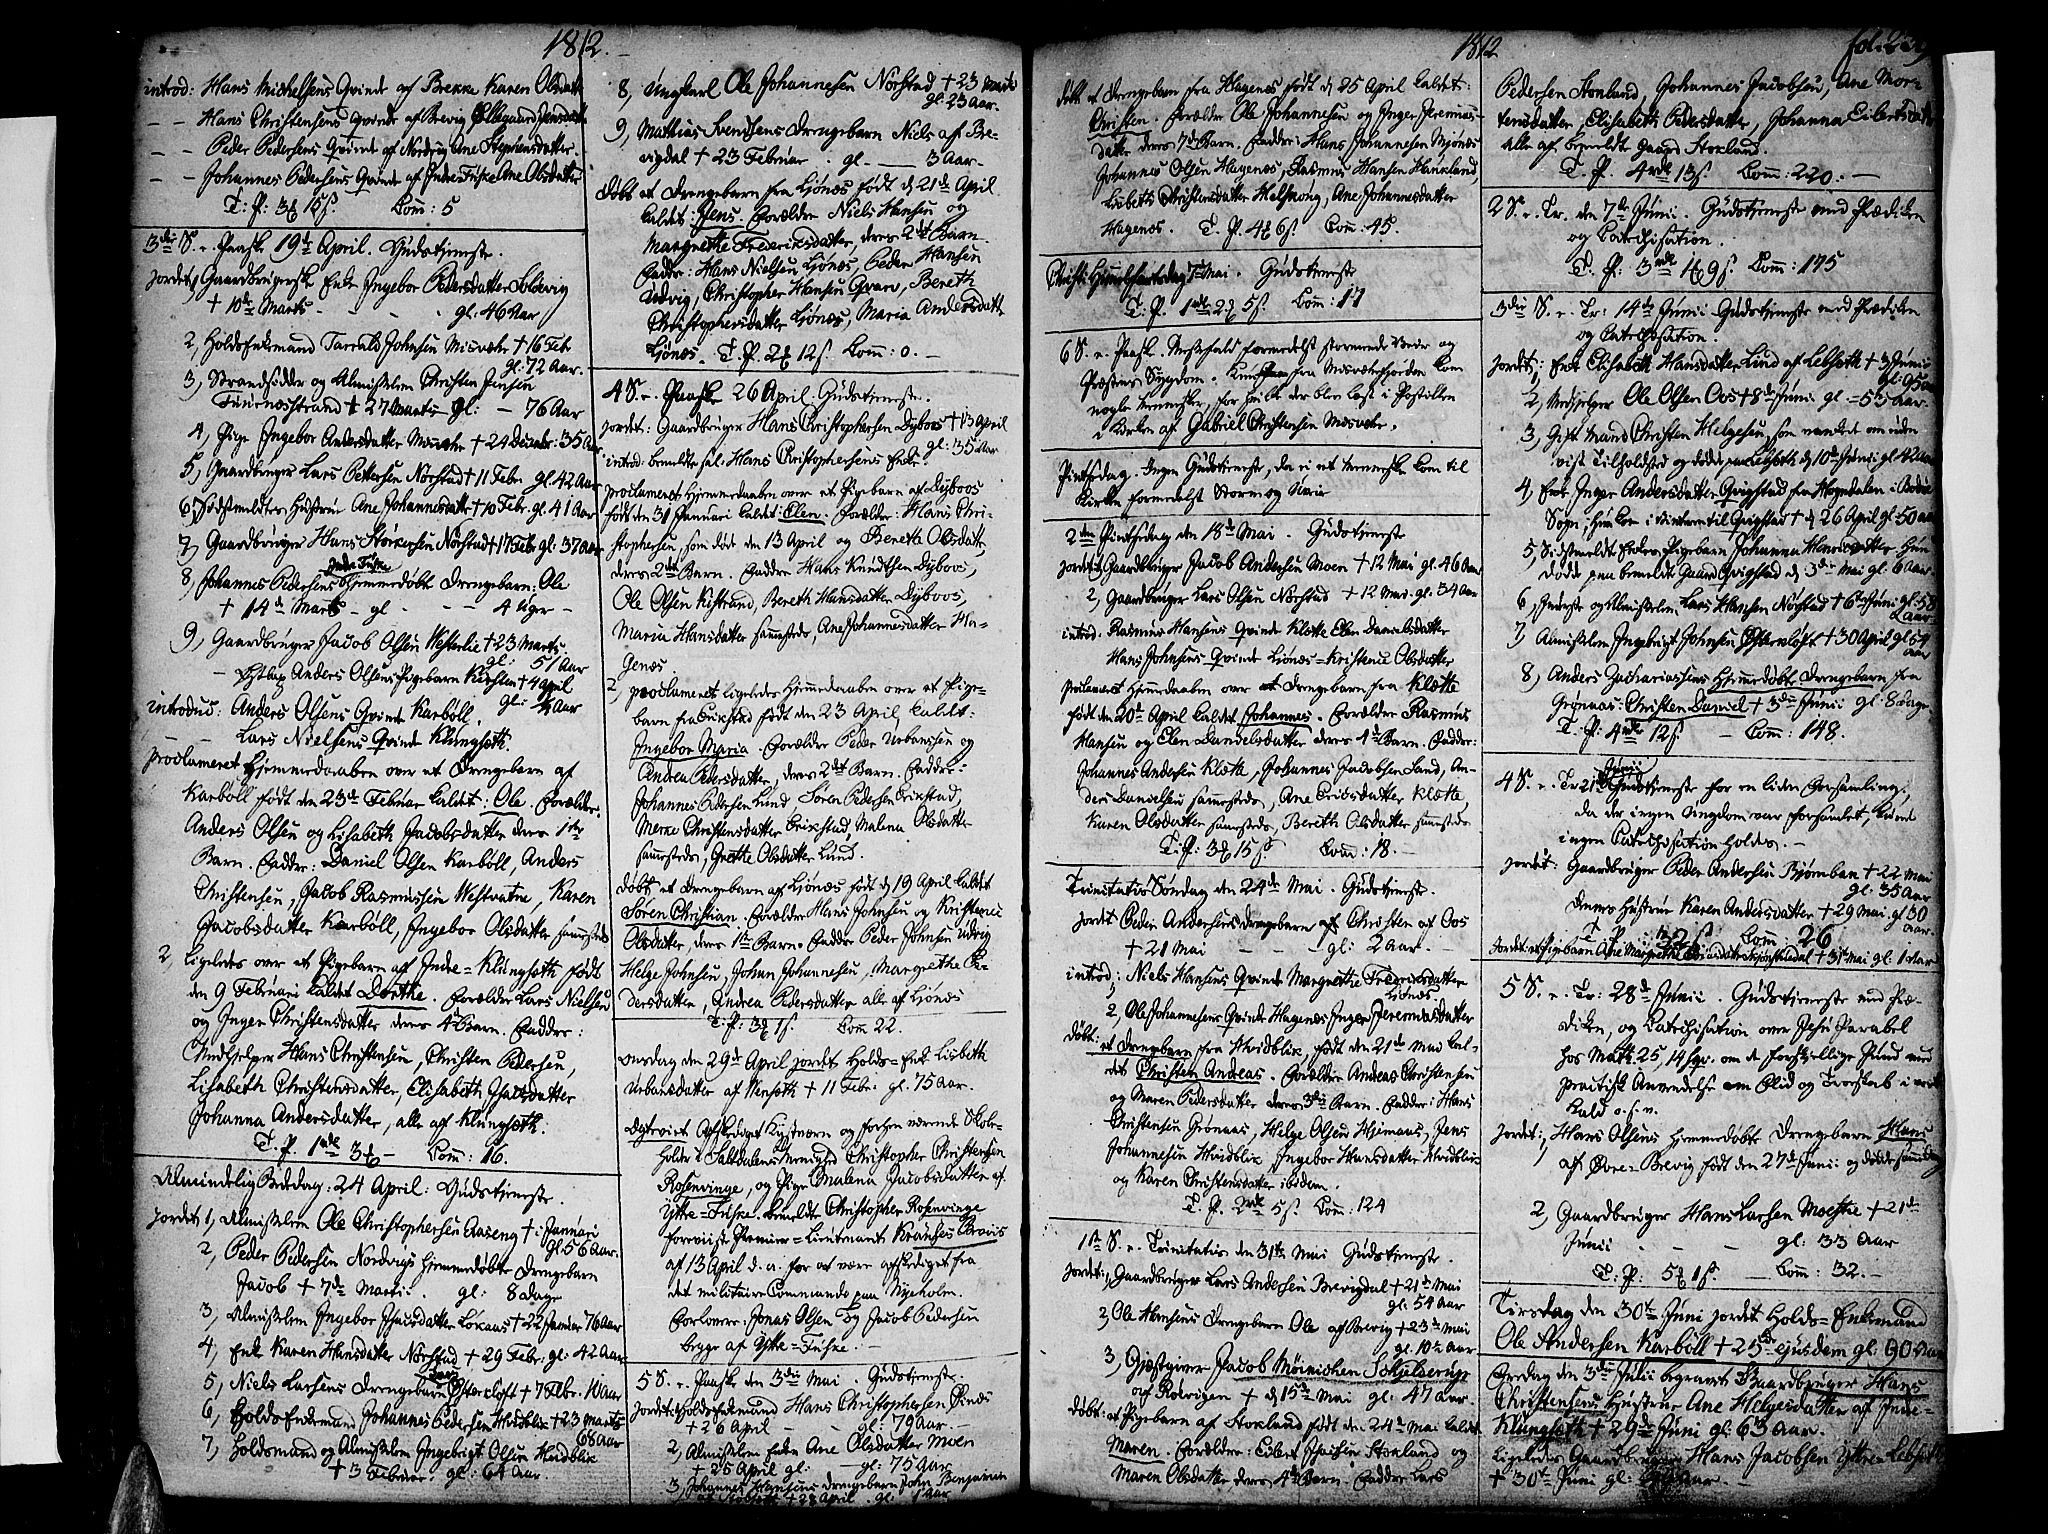 1812.
introd: Hans Michelsens Qvinde af Brekke Karen Olsdatt
— — Hans Christensens Qvinde af Brevig Øllegaard Jensdatt
— — Peder Pedersens Qvinde af Nordvig Ane Stephensdatter.
— — Johannes Pedersens Qvinde af Indre Fuske Ane Olsdatter
T: P: 3 15 s. Com: 5
3die S. e. Paaske 19de April. Gudstjeneste.
jordet, Gaardbrugerske Enke Ingebor Pedersdatter Soløevig
+ 10de Marts - - - gl: 46 Aar
2, Holds Enkemand Tarrald Johnsen Misvær + 16 Febr
gl: 72 Aar.
3, Strandsidder og Almisselem Christen Jensen
+ 27 Marts gl: — 76 Aar
4, Pige Ingebor Andersdatter + 24 Decembr: 35 Aar
5, Gaardbruger Lars Pedersen Nørstad + 11 Febr gl. 42 Aar
6, Sidstmeldtes Hustrue Ane Johannesdatter + 10 Febr. gl. 41 Aar
7, Gaardbruger Hans Nørstad + 17 Febr gl: 37 Aar
8, Johannes Pedersens Indre Fuske Hjemmedøbt Drengebarn: Ole
+ 14de Marts - gl - - - 4 Uger -
9, Gaardbruger Jacob Olsen Westerlie + 23 Marts
gl: 51 Aar
Anders Olsens Pigebarn Kirsten + 4 April
gl: ½ Aar
introduc: Anders Olsens Qvinde Karbøll.
Lars Nielsens Qvinde Klungseth.
proclameret Hjemmedaaben over et Drengebarn af
Karbøll født den 23de Februar kaldet: Ole. Forældre:
Anders Olsen og Lisabeth Jacobsdatter deres 1ste
Barn. Faddr: Daniel Olsen Karbøll, Anders
Christensen, Jacob Rasmussen Westvatne, Karen
Jacobsdatter Karbøll, Ingebor Olsdatter sammesteds
2, Ligeledes over et Pigebarn af Indre-Klungseth født
den 9 Februari kaldet Dorthe. Forældre Lars Nielsen
og Inger Christensdatter deres 4de Barn. Faddr:
Medhjelper Hans Christensen, Christen Pedersen,
Lisabeth Christensdatter, Elisabeth Isaksdatter
Johanna Andersdatter, alle af Klungseth:
T. P. 1rdl 3 — Com: 16.
Almindelig Bededag: 24 April: Gudstjeneste.
jordet 1, Almisselem Ole Christophersen Aaseng + i Januari
gl: 56 Aar.
2, Peder Pedersen Nordvigs Hjemmedøbte Drengebarn
Jacob + 7de Martii. gl: 8 Dage
3, Almisselem Ingebor Isacsdatter Løkaas + 22 Januar 76 Aar
4, Enke Karen Hansdatter Nørstad + 29 Febr: gl: 42 Aar
5, Niels Larsens Drengebarn Osterløft + 7 Febr. 10 Aar
6, Holds Enkemand Johannes Pedersen Hvidblik + 23 Marts
68 Aar
7, Holdsmand og Almisselem Ingebrigt Olsen Hvidblik
+ 3 Februar gl: 64 Aar.
8, Ungkarl Ole Johannesen Nørstad + 23 Marts
gl: 23 Aar.
9, Mathias Svendsens Drengebarn Niels af Bre-
vigdal + 23 Februar. gl. — 3 Aar.
Døbt et Drengebarn fra Ljönæs født d 21de April
kaldet: Jens. Forældre Niels Hansen og
Margrethe Frederiksdatter, deres 2det Barn.
Faddr: Hans Nielsen Ljönæs, Peder Hansen
Udvig, Christopher Hansen Qvarv, Bereth
Christophersdatter Ljönæs, Maria Andersdatt
Ljönæs. T. P. 2 12 s. Com: 0. —
4 S. e. Paaske 26 April. Gudstjeneste.
jordet: Gaardbruger Hans Christophersen Dybvos + 13 April
gl: 35 Aar
introd: bemeldte sal: Hans Christophersens Enke.
proclameret Hjemmedaaben over et Pigebarn af Dybvos
født den 31 Januari kaldet: Elen. Forældre: Hans Chri-
stophersen som døde den 13 April og Beretha Olsdatt,
deres 2det Barn. Faddr Hans Knudsen Dybvos,
Ole Olsen Kistrand, Bereth Hansdatter Dybvos,
Maria Hansdatter sammesteds, Ane Johannesdatter Ha-
genæs.
2, proclameret ligeledes Hjemmedaaben over et Pige-
barn fra Erikstad født den 23 April kaldt:
Ingebor Maria. Forældre Peder Urbansen og
Andrea Pedersdatter, deres 2det Barn. Faddr:
Johannes Pedersen Lund, Søren Pedersen Erikstad,
Merna Christensdatter Erikstad, Malena Olsdatter
sammesteds, Grethe Olsdatter Lund.
Døbt et Drengebarn af Ljönæs født d 19 April kaldet
Søren Christian. Forældre Hans Johnsen og Kristence
Olsdatter, deres 1ste Barn. Faddr Peder Johnsen Udvig
Helge Johnsen, Johan Johannesen, Margrethe Pe-
dersdatter, Andrea Pedersdatter alle af Ljönæs
T. P: 3 1 s. Com 22.
Onsdag den 29de April jordet Holds-Enke Lisbeth
Urbansdatter af Wenseth + 11 Febr: gl. 75 Aar.
Egteviet Afskediget Kystværn og forhen værende Skole-
holder i Saltdalens Menighed Christopher Christensen
Rosenvinge, og Pige Malena Jacobsdatter af
Ytre-Fuske. bemeldte Christopher Rosenvinge
foreviiste Premier-Lieutenant Krauses Beviis
af 13 April d. a. for at være afskediget fra
det militaire Commando paa Nyeholm.
Forlovere: Jonas Olsen og Jacob Pedersen
begge af Ytre-Fuske. —
5 S. e. Paaske den 3die Mai. Gudstjeneste.
jordet: Holdsenkemand Hans Christophersen
+ 26 April - gl: 79 Aar.
2, Almisselem Enke Ane Olsdatter Moen
+ 25 April gl. — gl: 75 Aar
3, Johannes Drengebarn John Benjamin
+ 28 April. gl: 1 Aar
1812 fol: 239
Døbt et Drengebarn fra Hagenæs født d 25 April kaldet:
Christen. Forældre Ole Johannesen og Inger Jeremias-
datter deres 7de Barn. Faddr: Hans Johannesen Mjönes
Johannes Olsen Hagenæs, Rasmus Hansen Haukland,
Lisbeth Christensdatter Ane Johannesdatter
Hagenæs. T. P. 4 6 s. Com: 45.
Christi Himmelfartsdag 7de Mai. Gudstjeneste
T. P. 1rdl 2 5 s. Com: 17
6 S. e. Paaske. Messefald formedelst stormende Veir og
Præstens Sygdom. fra Misværfjorden kom
nogle Mennesker, for hvilke der blev læst i Postillen
i Kirken af Gabriel Christensen Misvær.
Pintsedag. Ingen Gudstjeneste, da ei et Menneske kom til
Kirken formedelst Storm og Uveir
2den Pintsedag den 18de Mai. Gudstjeneste
jordet: Gaardbruger Jacob Andersen Moen + 12 Mai gl. 46 Aar
2, Gaardbruger Lars Olsen Nørstad + 12 Mai. gl: 34 Aar
introd. Rasmus Hansens Qvinde Klætte Elen Danielsdatter
Hans Johnsens Qvinde Ljönæs Kristence Olsdatter
proclameret Hjemmedaaben over et Drengebarn fra Klætte
født den 20de April kaldet Johannes. Forældre Rasmus
Hansen og Elen Danielsdatter deres 4de Barn. Faddr:
Johannes Andersen Klætte, Johannes Jacobsen Sand, An-
ders Danielsen sammesteds, Ane Ericsdatter Klætte,
Karen Olsdatter sammesteds, Bereth Olsdatter sammesteds
T. P: 3 15 s. Com: 18. —
Trinitatis Søndag den 24de Mai. Gudstjeneste.
jordet Peder Andersens Drengebarn Christen af Oos
+ 21 Mai - - gl: 2 Aar. —
introd: Niels Hansens Qvinde Margrethe Frederiksdatter
Ljönæs
2, Ole Johannesens Qvinde Hagenæs Inger Jeremiasdatter
Døbt: et Drengebarn fra Hvidblik, født den 21de Mai kal-
det Christen Andreas. Forældre Andreas Christensen
og Maren Pedersdatter deres 3die Barn. Faddr: Hans
Christensen Grønaas, Helge Olsen Hjemaas, Jens
Johannesen Hvidblik, Ingebor Hansdatter Hvidblik
og Karen Christensdatter ibidem.
T. P. 2rdl 5 s. Com: 124
1ste S. e. Trinitatis den 31te Mai Gudstjeneste.
jordet:, Gaardbruger Lars Andersen Brevigdal + 21de Mai
gl: 54 Aar
2, Ole Hansens Drengebarn Ole af Brevig + 23de Mai
gl. 10 Aar
3, Gjæstgiver Jacob Mönnichen Schjelderup
af Rodvigen + d 15de Mai gl: 47 Aar.
Døbt: et Pigebarn af Stokland født den 24de Mai kaldet
Maren. Forældre: Eibert Isachsen Stokland og
Maren Olsdatter deres 4de Barn. Faddr Lars
1812
Pedersen Stokland, Johannes Jacobsen, Ane Mor-
tensdatter, Elisabeth Pedersdatter, Johanna Eibertsdatt
Alle af bemeldt Gaard Stokland.
T. P. 4rdl 13 s. Com: 220. —
2 S. e. Tr. den 7de Junii. Gudstjeneste med Prædiken
og Catechisation.
T. P: 3rdl 1 9 s. Com: 175
3die S. e. Tr: 14de Junii Gudstjeneste med Prædiken
og Catechisation.
jordet:, Enke Elisabeth Hansdatter Lund af Lebseth + 3 Junii
gl: 95 Aar
2, Medhjelper Ole Olsen Oos + 8de Junii gl. = 55 Aar.
3, Gift Mand Christen Helgesen som vankede om uden
vist Tilholdsted og døde paa Lebseth d 10de Junii gl. 42 Aar
4, Enke Inger Andersdatter Qvigstad fra Høgndalen i Bodøe
Sogn; hun kom i Vinteren til Qvigstad + d 26 April gl: 50 aar
5, Sidstmeldt Enkes Pigebarn Johanna Hansdatter hun
døde paa bemeldt Gaard Qvigstad d 3die Mai gl. 6 Aar.
6, Inderst og Almisselem Lars Hansen Nørstad + 6te Junii gl: 58
Aar
7, Almisselem Ingebrigt Johnsen Osterløft + 30 April gl 64
aar
8, Anders Zachariassens Hjemmedøbte Drengebarn fra
Grønaas: Christen Daniel + 3die Junii gl. 8 dage.
T. P. 4rdl 12 s — Com: 148.
4 S. e. Tr 21 Junii Gudstjeneste for en liden Forsamling,
da der ingen Ungdom var forsamlet, kunde
ingen Catechisation holdes. —
jordet: Gaardbruger Peder Andersen Björnbak + 22 Mai
gl: 35 Aar
Dennes Hustrue Karen Andersdatter + 29 Mai. gl 30
aar.
Com 26
jordet: et Pigebarn Ane Margrethe + 31te Mai gl: 1 Aar
5 S. e. Tr: 28de Junii. Gudstjeneste med Præ-
diken, og Catechisation over Jesu Parabel
hos Math. 25, 14 sqv. om de forskjellige Pund med
practisk Anvendelse om Flid og Troskab i vort
Kald o. s. v.
jordet:, Hans Olsens Hjemmedøbte Drengebarn Hans
af Øvre-Brevig født den 27de Junii og døde samme Dag
2, Gaardbruger Hans Larsen Moestue + 21de
Junii - - - gl: 33 Aar
T: P: 5 1 s. — Com: 32. —
Tirsdag den 30te Junii jordet Holds-Enkemand
Ole Andersen Karbøll + 25 ejusdem gl: 90 Aar
Fredag den 3die Julii begravet Gaardbruger Hans
Christensens Hustrue Ane Helgesdatter af Indre-
Klungseth + 29de Junii gl: 63 Aar.
Ligeledes Gaardbruger Hans Jacobsen Ytter Lebseth
+ 30te Junii gl: Aar. —